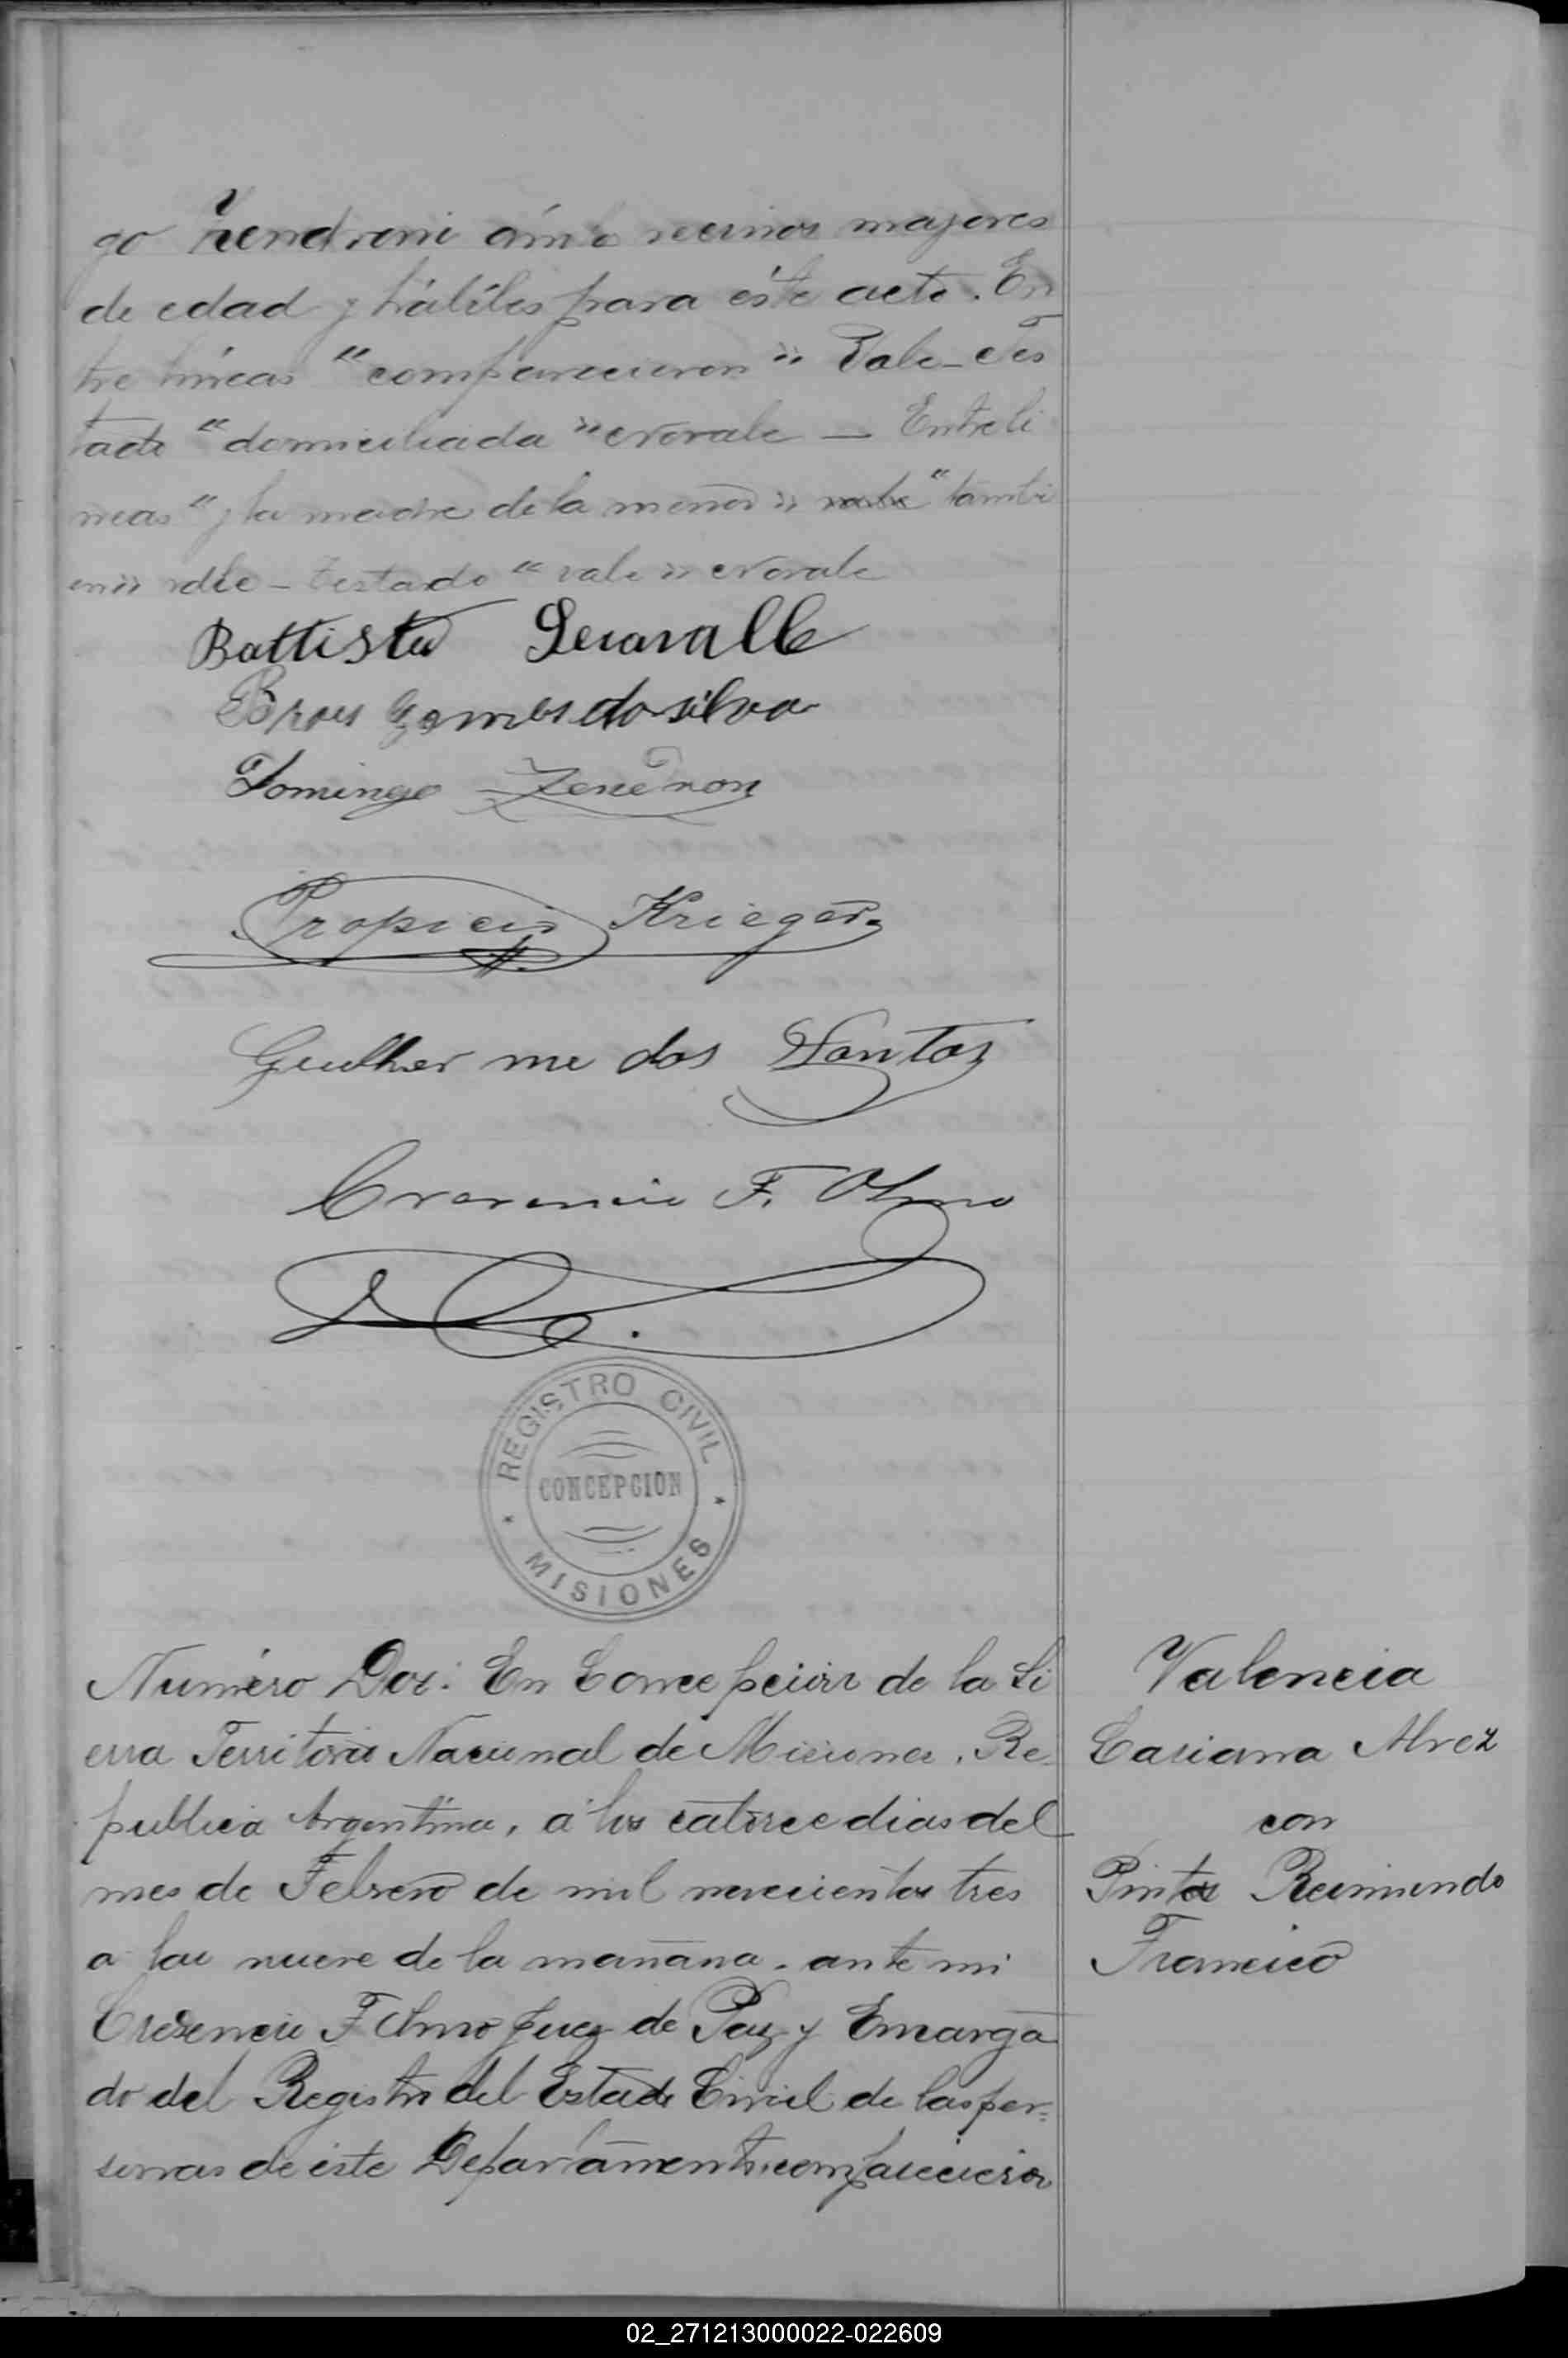 go Zendroni ámbo vecinos mayores
de edad y hábiles para éste acto. En
tre líneas "comparecieron" Vale - Tes
tado "domiciliada" no vale — Entreli
neas "y la madre de la menor" vale "tambi
en" vale - Testado "vale" no vale
Battista
Gomes da silva
Domingo
Propicio Krieger
Guilherme dos Santos
Cresencio F. Olmo
REGISTRO CIVIL
CONCEPCION
MISIONES
Número Dos: En Concepción de la Si
erra Territorio Nacional de Misiones, Re
publica Argentina, á los catorce dias del
mes de Febrero de mil novecientos tres
a las nueve de la mañana. ante mi
Cresencio F Olmo Juez de Paz y Encarga
do del Registro del Estado Civil de las per=
sonas de éste Departamento, comparecieron
Valencia
Casiana Alvez
con
Pintos Reimundo
Francisco
02_271213000022-022609